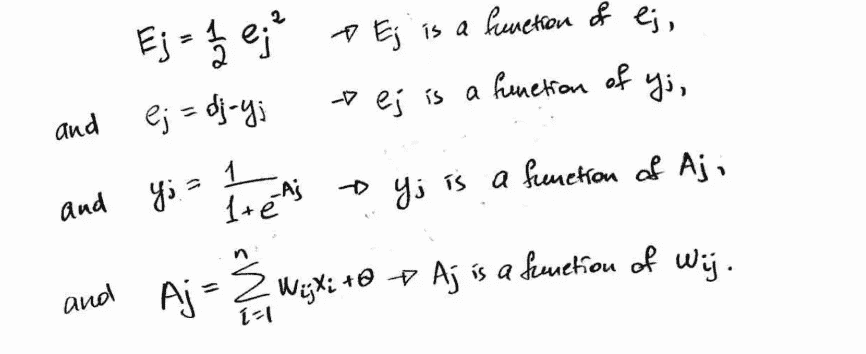 Ej = 1/2 ej² → Ej is a function of ej,
and ej = dj-yj → ej is a function of yj,
and yj = 1/(1+e^-Aj) → yj is a function of Aj,
and Aj = Σ_{i=1}^{n} Wijxi + θ → Aj is a function of Wij.